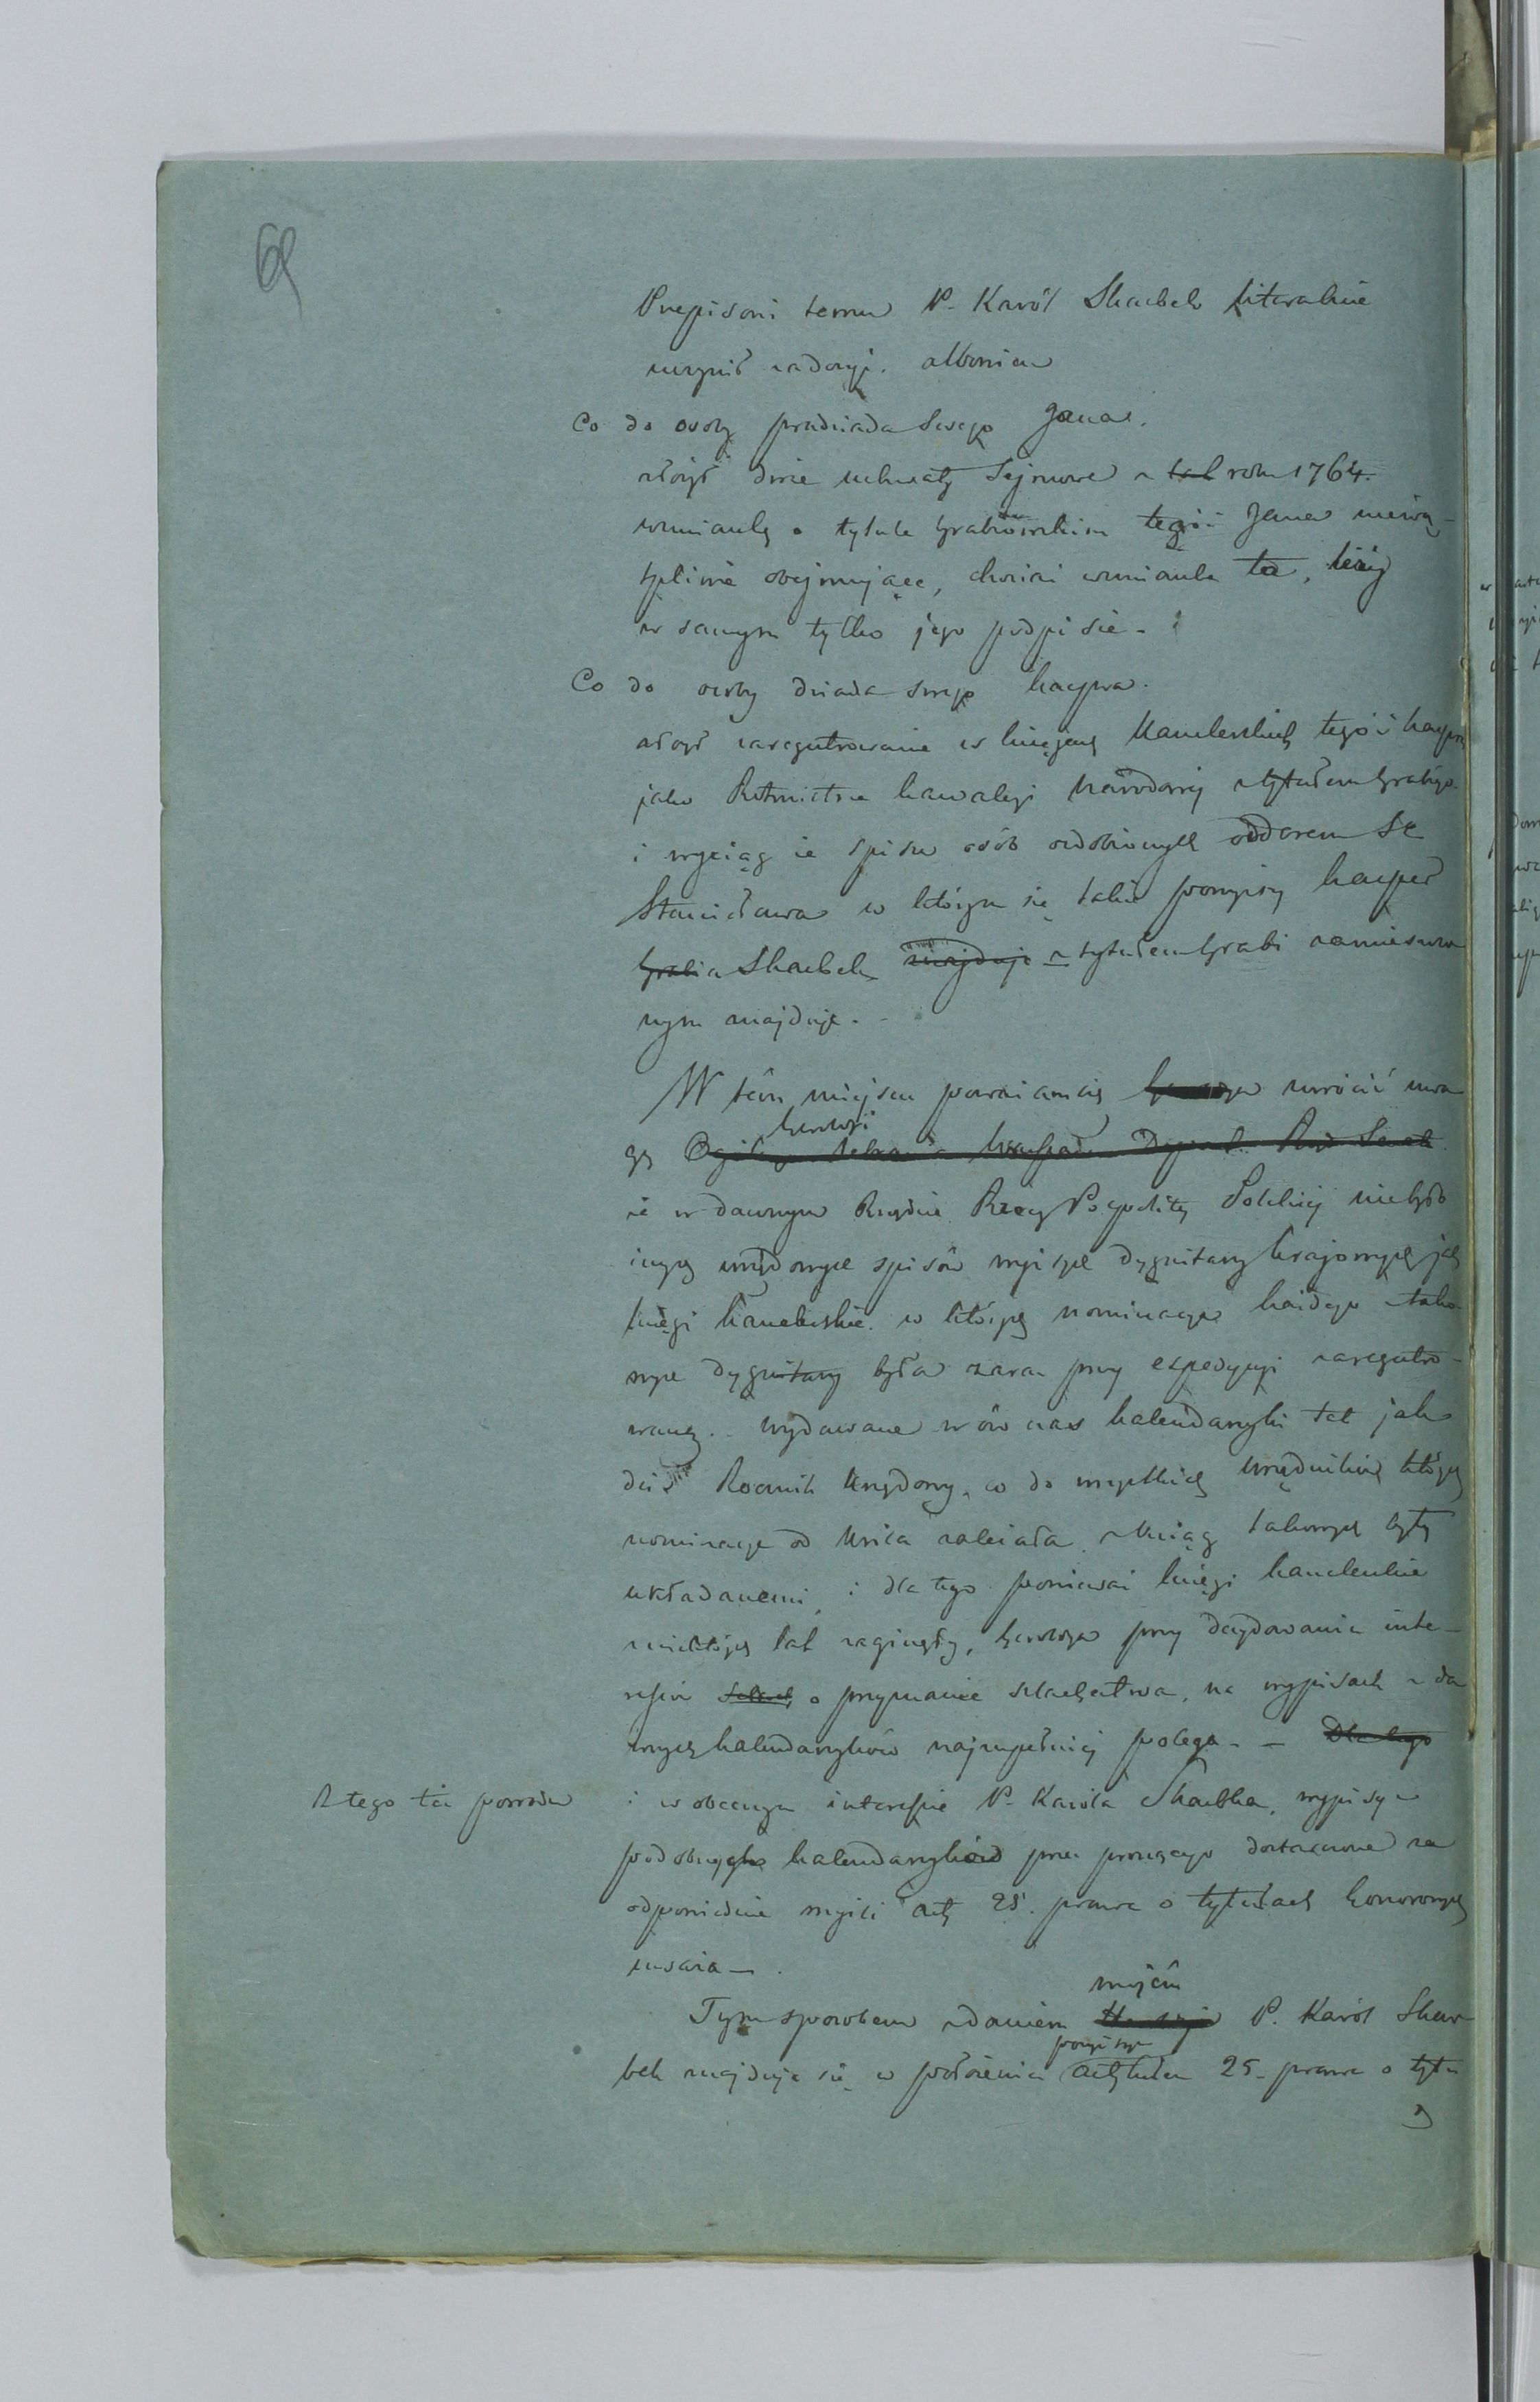 69
Przepisowi temu P. Karól Skarbek literalnie
uczynił zadosyć. albowiem
Co do osoby pradziada swego Jana.
złożył dwie uchwały Sejmowe z roku 1764.
wzmiankę o tytule Hrabiowskim tegoż Jana niewą-
tpliwie obejmujące, chociaż wzmianka ta, leży
w samym tylko jego podpisie.
Co do osoby dziada swego Kacpra.
złożył zaregestrowanie w księgach Kanclerskich tegoż Kacpra
jako Rotmistrza kawalerji Narodowej z tytułem Hrabiego
i wyciąg ze spisu osób ozdobionych orderem Sgo
Stanisława w którym się także powyższy Kacper
Hrabia Skarbek znajduje z tytułem Hrabi zamieszczo
nym znajduje.
W tém miejscu powinienem uwagę zwrócić uwa
gę
Heroldyi
że w dawnym Rządzie Rzeczy Pospolitej Polskiej nie było
innych urzędowych spisów wyższych dygnitarzy krajowych jak
księgi Kanclerskie w których nominacya każdego z tako-
wych dygnitarzy była zaraz przy expedycyi zaregestro-
waną. wydawane w ów czas kalendarzyki tak jak
dziś Rocznik Urzędowy, co do wszystkich urzędników których
nominacya od Króla zależała z ksiąg takowych były
układanemi, i dla tego ponieważ księgi kanclerskie
z niektórych lat zaginęły, Heroldya przy decydowaniu inte-
ressów o przyznanie szlachectwa, na wypisach z da
wnych kalendarzyków najzupełniej polega. — Dla tego
Z tego też powodu
i w obecnym interessie P. Karóla Skarbka, wypisy z
podobnych kalendarzyków przez proszącego dostarczone za
odpowiednie myśli art. 25. prawa o tytułach honorowych
uważa —.
Tym sposobem zdaniem P. Karól Skar
mojém
bek znajduje się w położeniu artykułem 25. prawa o tytu
powyższym